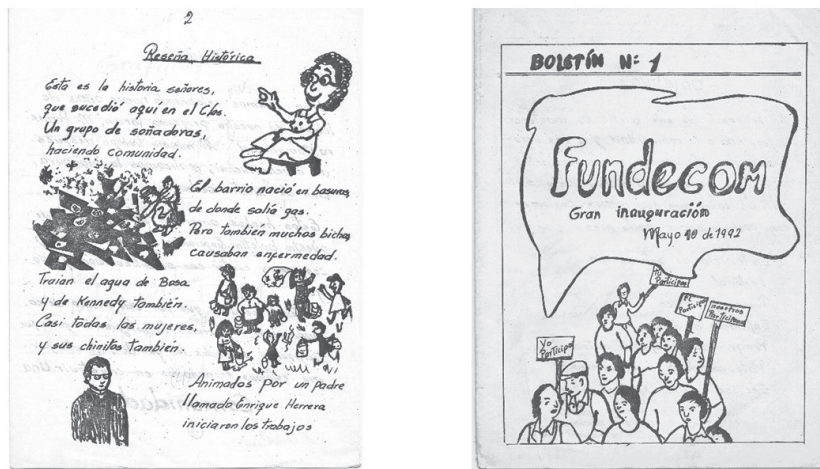 2
Reseña Histórica
Esta es la historia señores,
que sucedió aquí en el Cbs.
Un grupo de soñadoras,
haciendo comunidad.
El barrio nació en basuras,
de donde salía gas.
Pero también muchos bichos
causaban enfermedad.
Traian el agua de Bosa
y de Kennedy también.
Casi todas las mujeres,
y sus chinitos también.
Animados por un padre
llamado Enrique Herrera
iniciaron los trabajos
BOLETÍN Nº 1
Fundecom
Gran inauguración
Mayo de 1992
Yo
Participo
Nosotros
Participamos
Yo
Participo